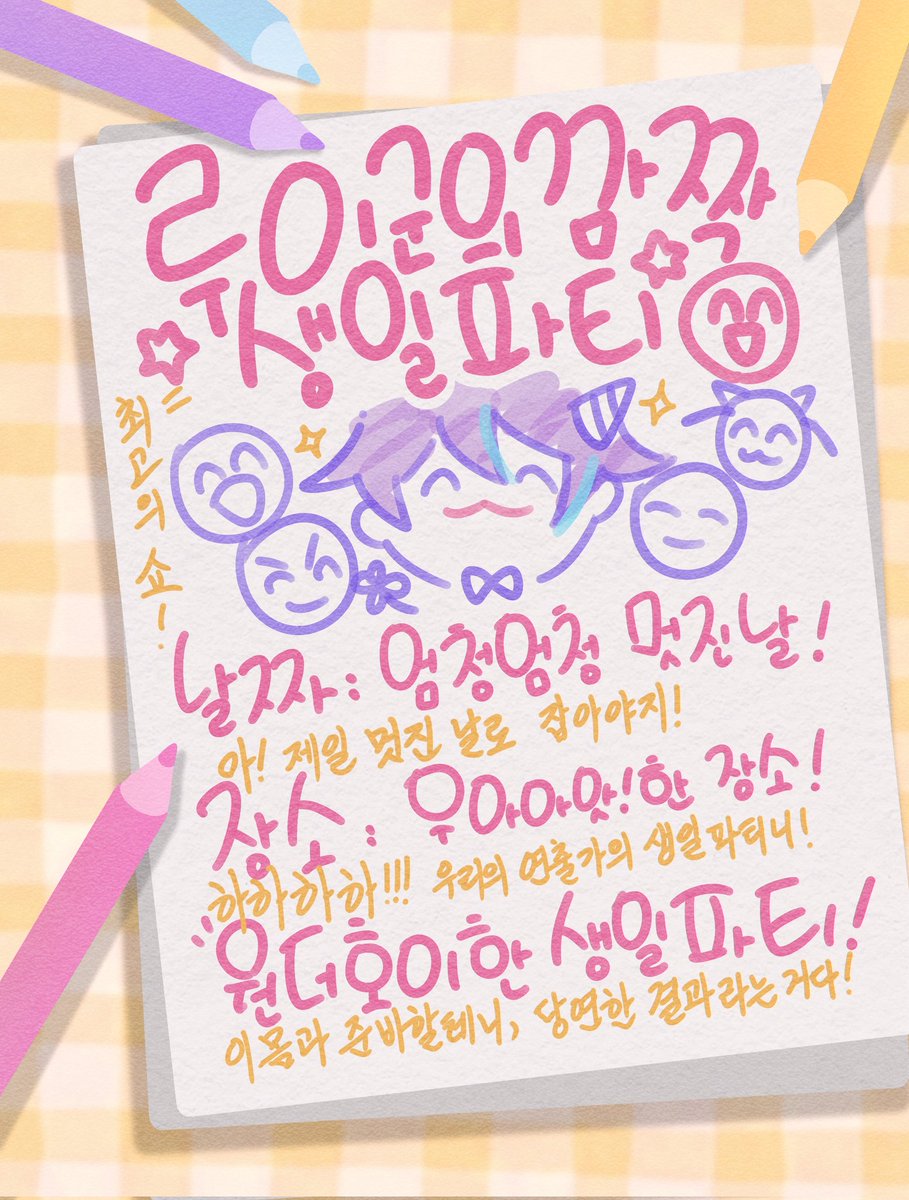 루이군의 깜짝
생일파티
최고의 쇼!
날짜 : 엄청엄청 멋진날!
아! 제일 멋진 날로 잡아야지!
장소 : 우아아앗!한 장소!
하하하하!!! 우리의 연출가의 생일파티니!
"원더호이한 생일파티!
이몸과 준비할테니, 당연한 결과라는 거다!